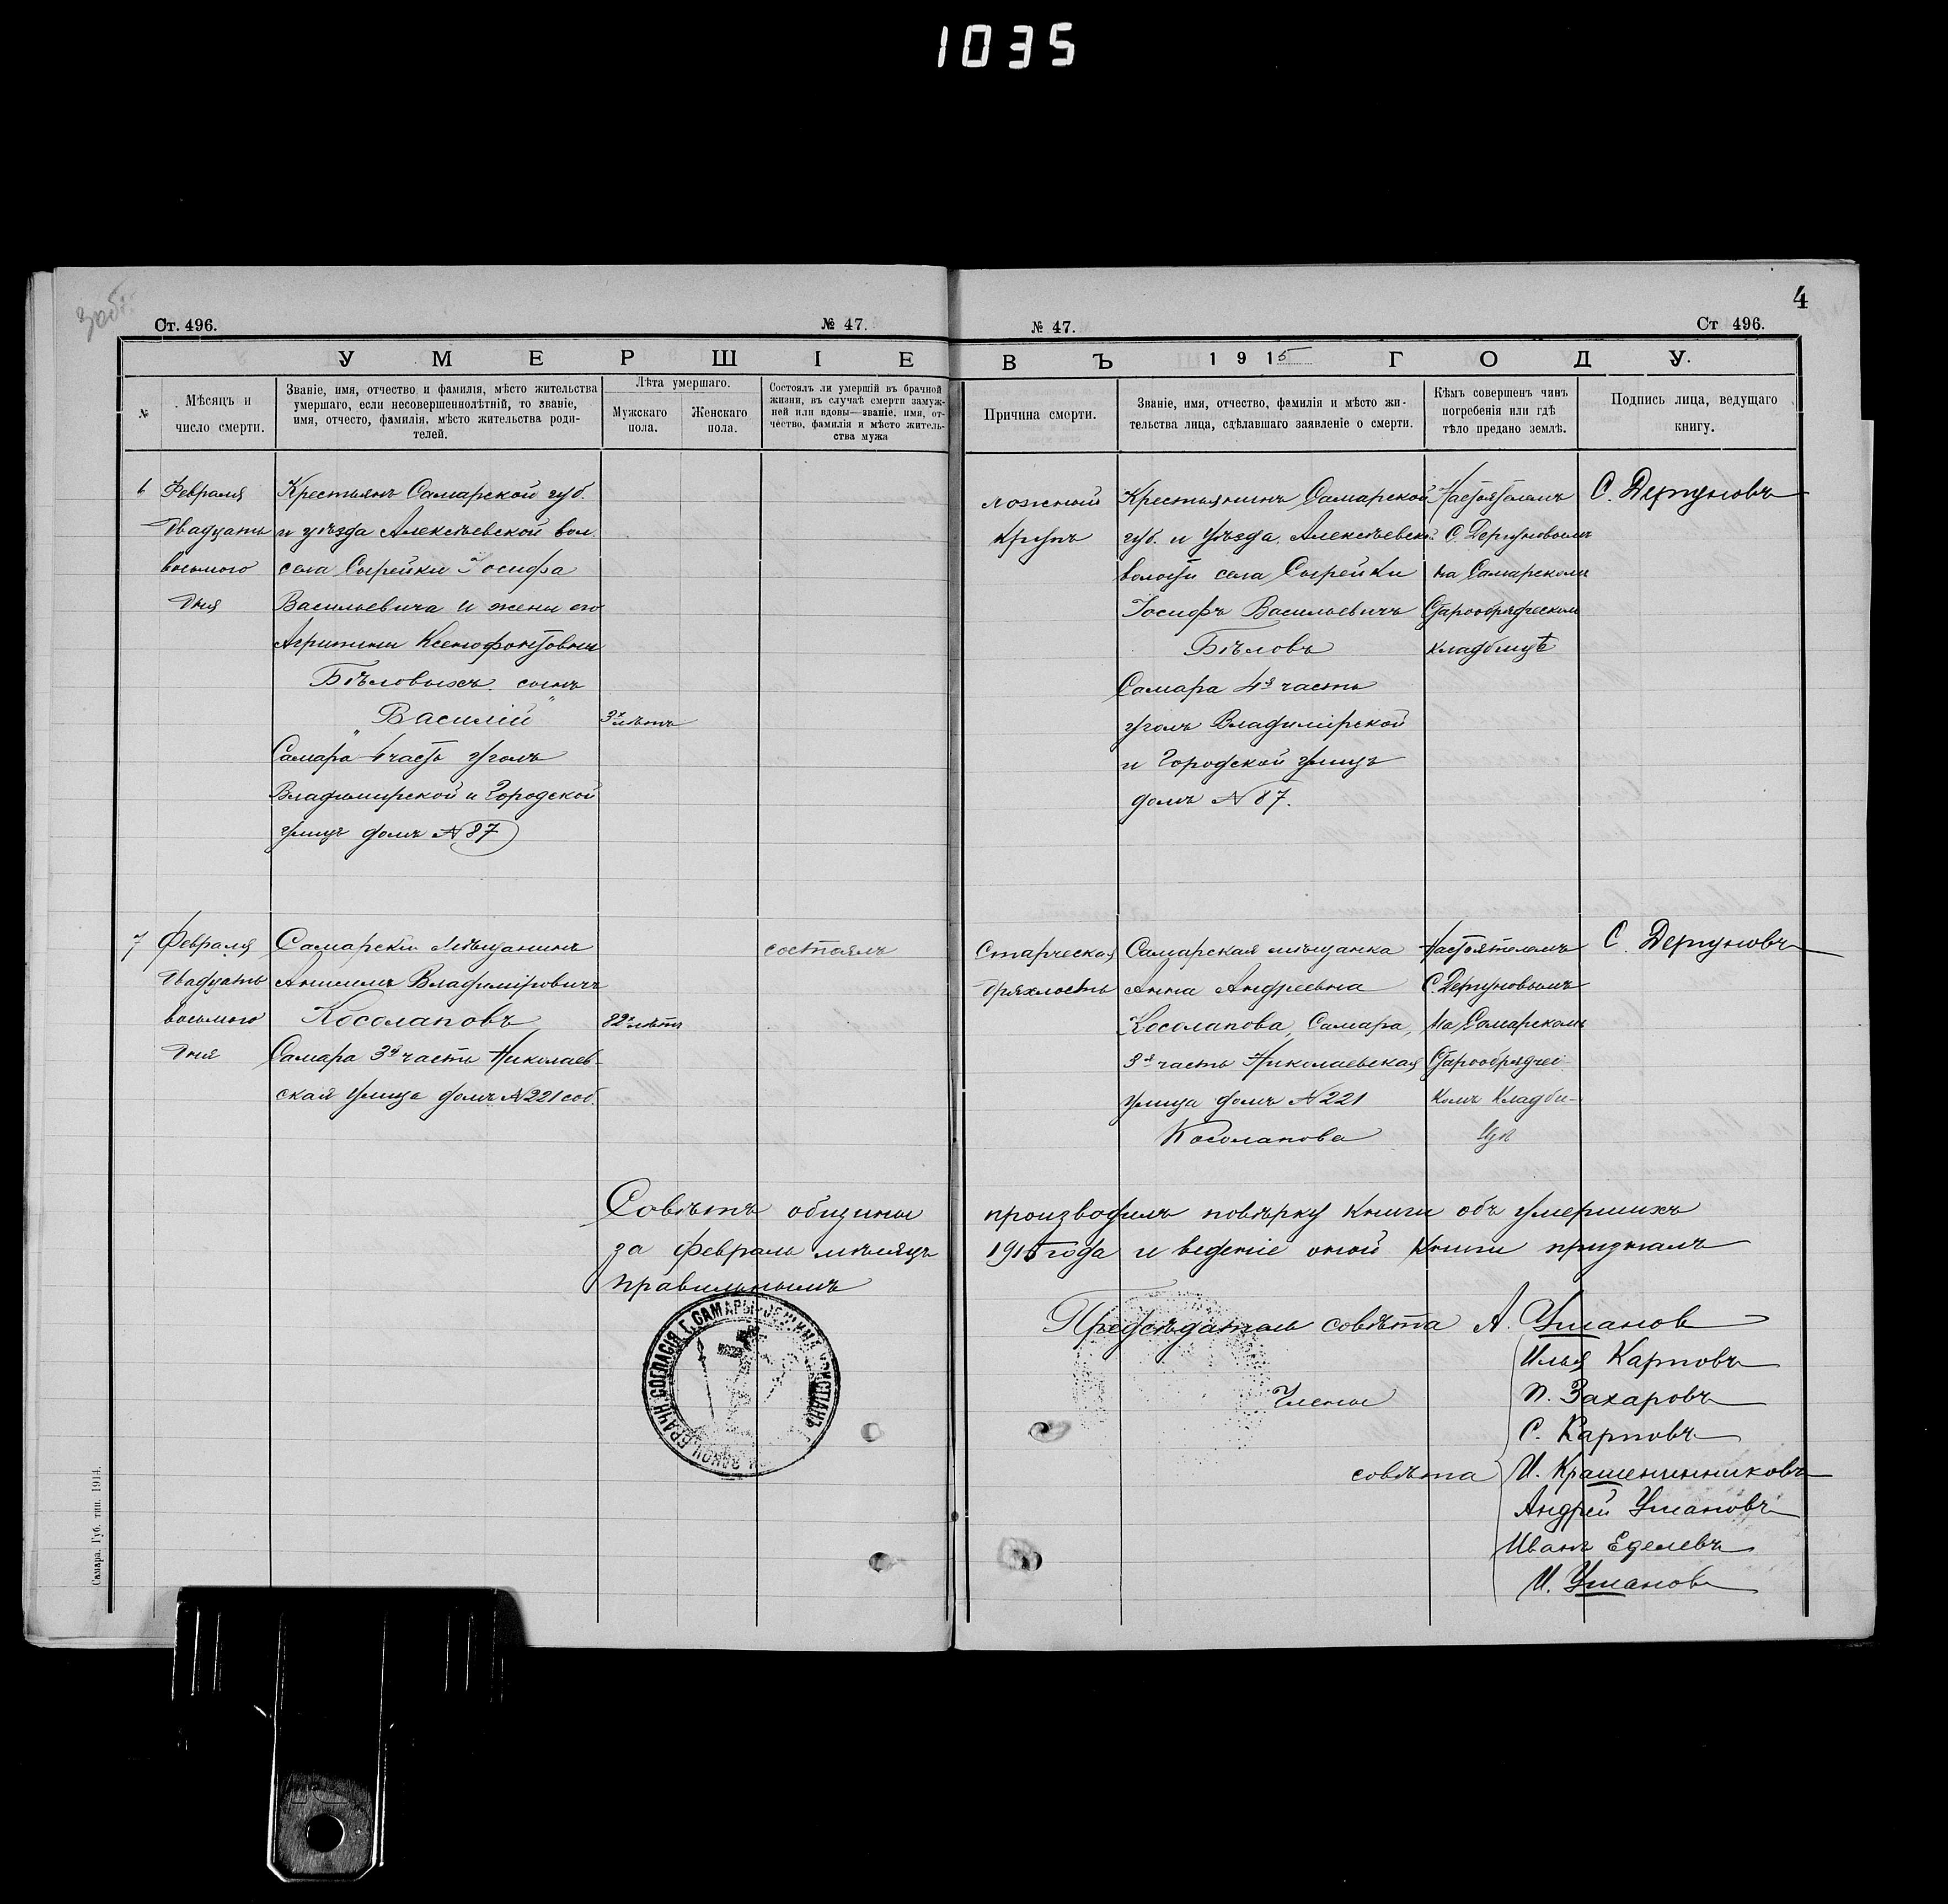 1035
4
Ст. 496.
№ 47.
№ 47.
Ст 496.
УМЕРШІЕ
ВЪ 1915 ГОДУ.
№
Мѣсяцъ и
число смерти.
Званіе, имя, отчество и фамилія, мѣсто жительства
умершаго, если несовершеннолѣтній, то званіе,
имя, отчесто, фамилія, мѣсто жительства роди-
телей.
Лѣта умершаго.
Мужскаго
пола.
Женскаго
пола.
Состоялъ ли умершій въ брачной
жизни, въ случаѣ смерти замуж-
ней или вдовы—званіе, имя, от-
чество, фамилія и мѣсто житель-
ства мужа
Причина смерти.
Званіе, имя, отчество, фамилія и мѣсто жи-
тельства лица, сдѣлавшаго заявленіе о смерти.
Кѣмъ совершенъ чинъ
погребенія или гдѣ
тѣло предано землѣ.
Подпись лица, ведущаго
книгу.
6
Февраля
двадцать
восьмого
дня
Крестьянъ Самарской губ.
и уѣзда Алексѣевской вол.
села Сырейки Іосифа
Васильевича и жены его
Агрипины Ксенофонтовны
Бѣловыхъ сынъ
"Василій"
Самара 4 часть уголъ
Владимирской и Городской
улицъ домъ № 87
3х лѣтъ
ложный
крупъ
Крестьянинъ Самарской
губ. и уѣзда, Алексѣевской
волости села Сырейки
Іосифъ Васильевичъ
Бѣловъ
Самара 4я часть
уголъ Владимірской
и Городской улицъ
домъ № 87.
Настоятелемъ
С. Дергуновымъ
на Самарскомъ
Старообрядческом
кладбищѣ
С. Дергуновъ
7
Февраля
двадцать
восьмого
дня
Самарскій Мѣщанинъ
Анисимъ Владиміровичъ
Косолаповъ
Самара 3я часть Николаев-
ская улица домъ № 221 соб.
82х лѣтъ
состоялъ
Старческая
дряхлость
Самарская мѣщанка
Анна Андреевна
Косолапова, Самара,
3я часть Николаевская
улица домъ № 221
Косолапова
Настоятелемъ
С. Дергуновымъ
на Самарскомъ
Старообрядчес-
комъ Кладби-
щѣ
С. Дергуновъ
Совѣтъ общины производилъ повѣрку книги объ умершихъ
за февраль мѣсяцъ 1915 года и веденіе оной книги призналъ
правильнымъ
Предсѣдатель совѣта А. Ушанов
Члены
совѣта
Илья Карповъ
П. Захаровъ
С. Карповъ
И. Крашенинниковъ
Андрей Ушановъ
Иванъ Еделевъ
И. Ушанов
БРАЧН. СОГЛАСІЯ Г. САМАРЫ
Самара. Губ. тип. 1914.